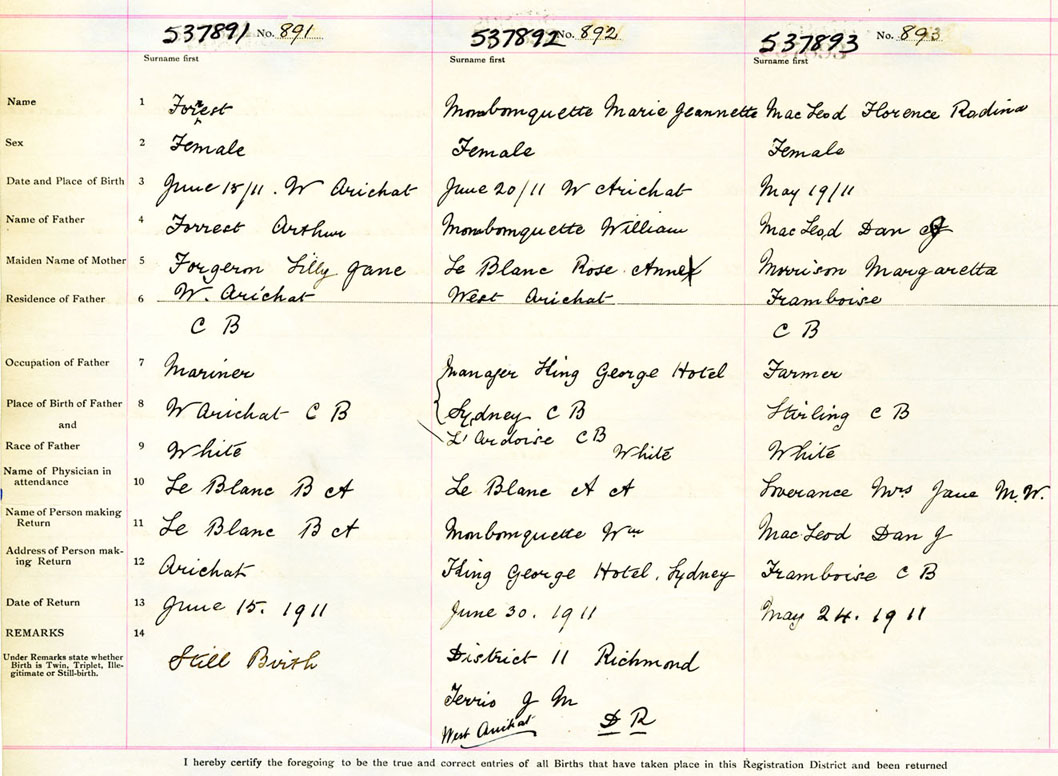 537891 No. 891 537892 No. 892 537893 No. 893
Surname first Surname first Surname first
Name 1 Forest Mombomquette Marie Jeannette MacLeod Florence Radina
Sex 2 Female Female Female
Date and Place of Birth 3 June 15/11. W Arichat June 20/11 W Arichat May 19/11
Name of Father 4 Forrest Arthur Mombomquette William MacLeod Dan J
Maiden Name of Mother 5 Forgeron Lilly Jane Le Blanc Rose Anne Morrison Margaretta
Residence of Father 6 W. Arichat West Arichat Framboise
C B C B
Occupation of Father 7 Mariner Manager King George Hotel Farmer
Place of Birth of Father 8 W Arichat C B Sydney C B Stirling C B
and L'Ardoise C B
Race of Father 9 White White White
Name of Physician in
attendance 10 Le Blanc B A Le Blanc A A Loverance Mrs Jane M.W.
Name of Person making
Return 11 Le Blanc B A Mombomquette Wm MacLeod Dan J
Address of Person mak-
ing Return 12 Arichat King George Hotel, Sydney Framboise C B
Date of Return 13 June 15. 1911 June 30. 1911 May 24. 1911
REMARKS 14
Under Remarks state whether
Birth is Twin, Triplet, Ille-
gitimate or Still-birth. Still Birth District 11 Richmond
Terrio J M
West Arichat D R
I hereby certify the foregoing to be the true and correct entries of all Births that have taken place in this Registration District and been returned